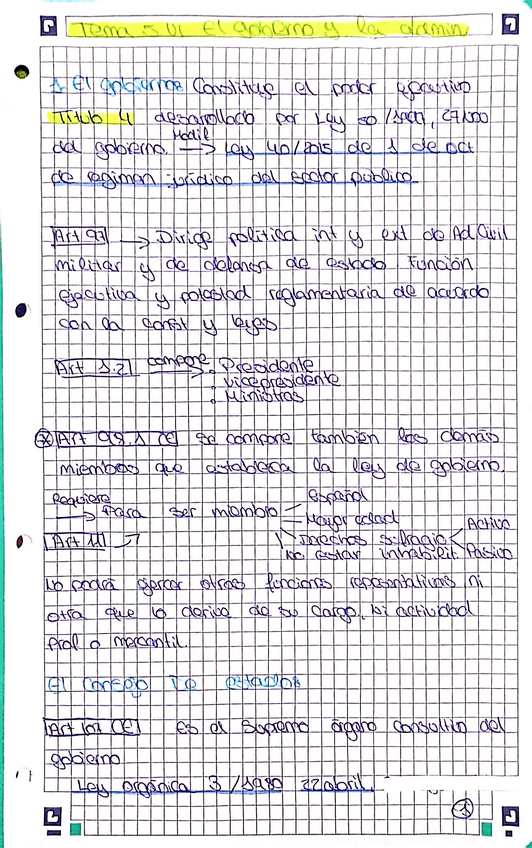 Tema 5 VI El gobierno y la admin
1 El gobierno: Constituye el poder ejecutivo
Titulo 4 desarrollado por Ley 50/1997, 27/1100
del gobierno. Modif → Ley 40/2015 de 1 de oct
de regimen jurídico del sector público
Art 97 → Dirige política int y ext de Ad Civil
militar y de defensa de estado Función
ejecutiva y potestad reglamentaria de acuerdo
con la const y leyes
Art 1.2 compone → • Presidente
• Vicepresidente
• Ministros
* Art 98.1 CE se compone también los demás
miembros que establezca la ley de gobierno.
Requiere → Para ser miembro Español
Mayor edad
Art 11 Derechos sufragio Activo
no estar inhabilit. Pasivo
No podrá ejercer otras funciones representativas ni
otra que lo derive de su cargo, ni actividad
prof o mercantil.
El Consejo De estados
Art 107 CE es el Supremo órgano consultivo del
gobierno
Ley orgánica 3/1980 22 abril.
1